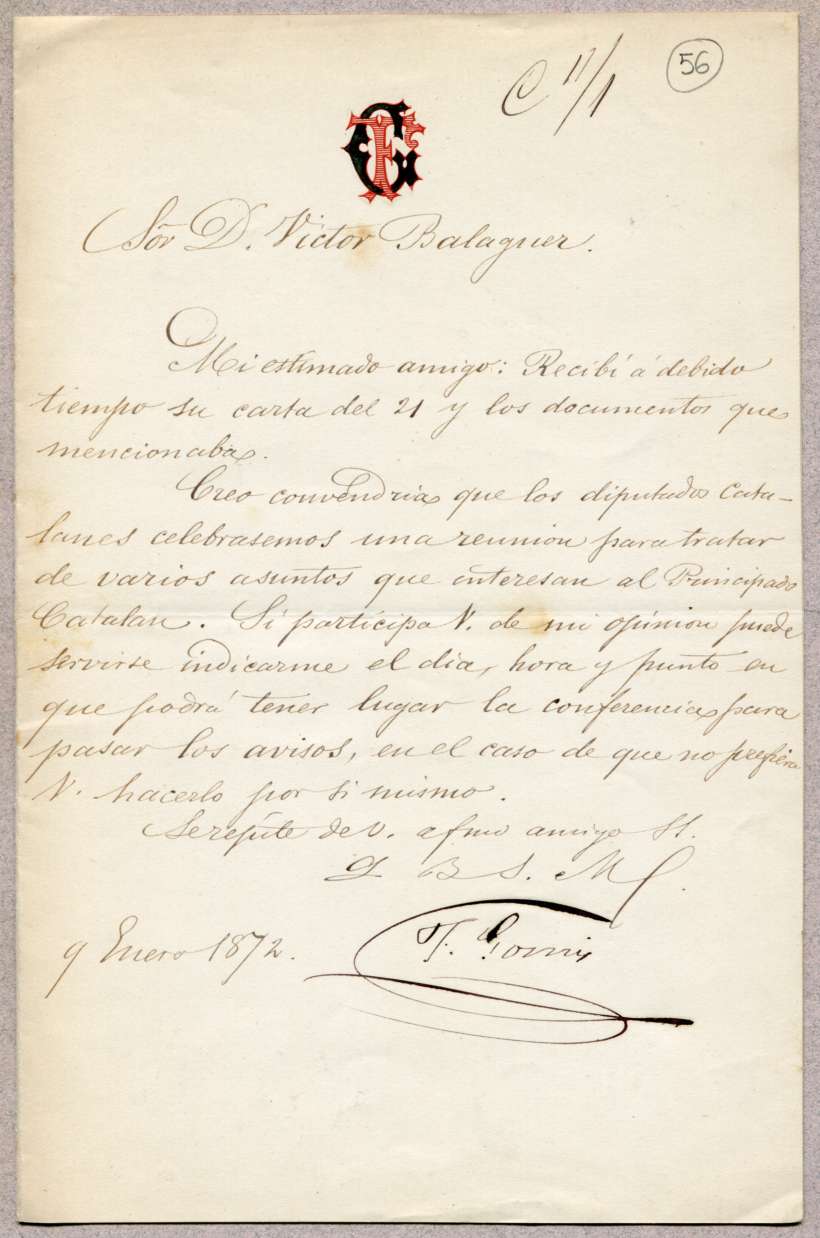 C 11/1
56
Sör D. Victor Balaguer.
Mi estimado amigo: Recibí á debido
tiempo su carta del 21 y los documentos que
mencionaba.
Creo convendria que los diputados Cata-
lanes celebrasemos una reunion para tratar
de varios asuntos que interesan al Principado
Catalan. Si participa V. de mi opinion puede
servirse indicarme el dia, hora y punto en
que podrá tener lugar la conferencia para
pasar los avisos, en el caso de que no prefiera
V. hacerlo por si mismo.
Se repite de V. afmo amigo St.
Q B S. M.
9 Enero 1872.
F. Gomis